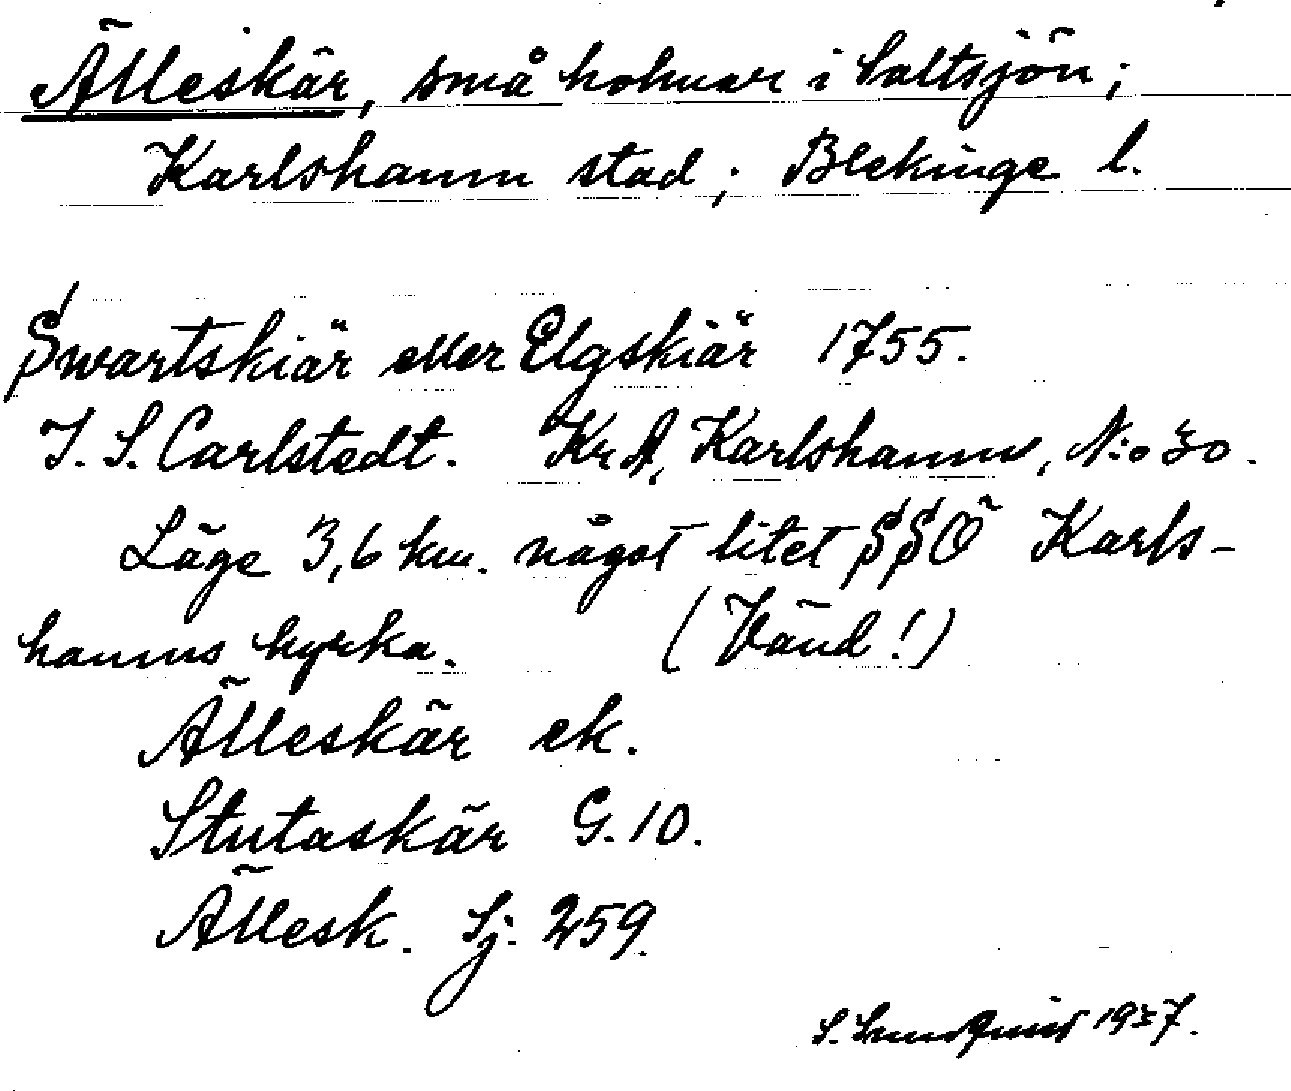 Älleskär, små holmar i Saltsjön;
Karlshamn stad; Blekinge l.
Swartskiär eller Elgskiär 1755.
J. S. Carlstedt. KrA, Karlshamn, N:o 30.
Läge 3,6 km. något litet SSÖ Karls-
hamns kyrka. (Vänd!)
Älleskär ek.
Stutaskär G. 10.
Ällesk. Sj. 259.
S. Lundquist 1937.